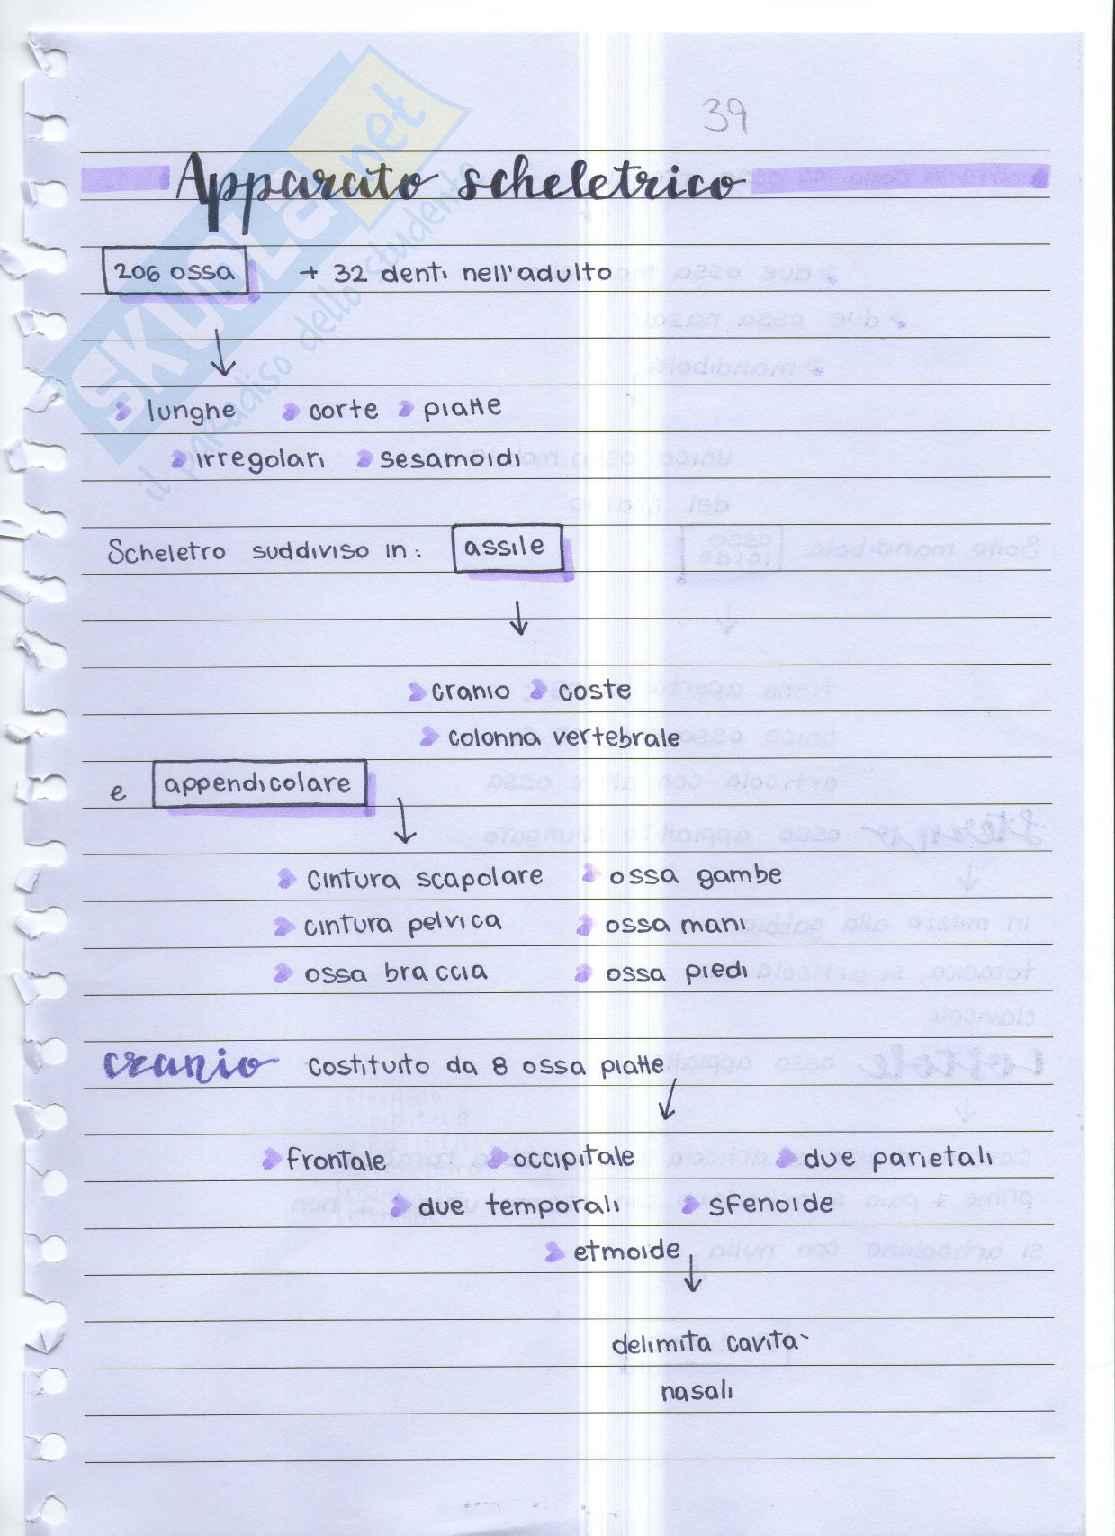 39
Apparato scheletrico
206 ossa + 32 denti nell'adulto
lunghe corte piatte
irregolari sesamoidi
Scheletro suddiviso in: assile
cranio coste
colonna vertebrale
e appendicolare
cintura scapolare ossa gambe
cintura pelvica ossa mani
ossa braccia ossa piedi
cranio Costituito da 8 ossa piatte
frontale occipitale due parietali
due temporali sfenoide
etmoide
delimita cavita`
nasali
SKUOLA.net
il paradiso dello studente